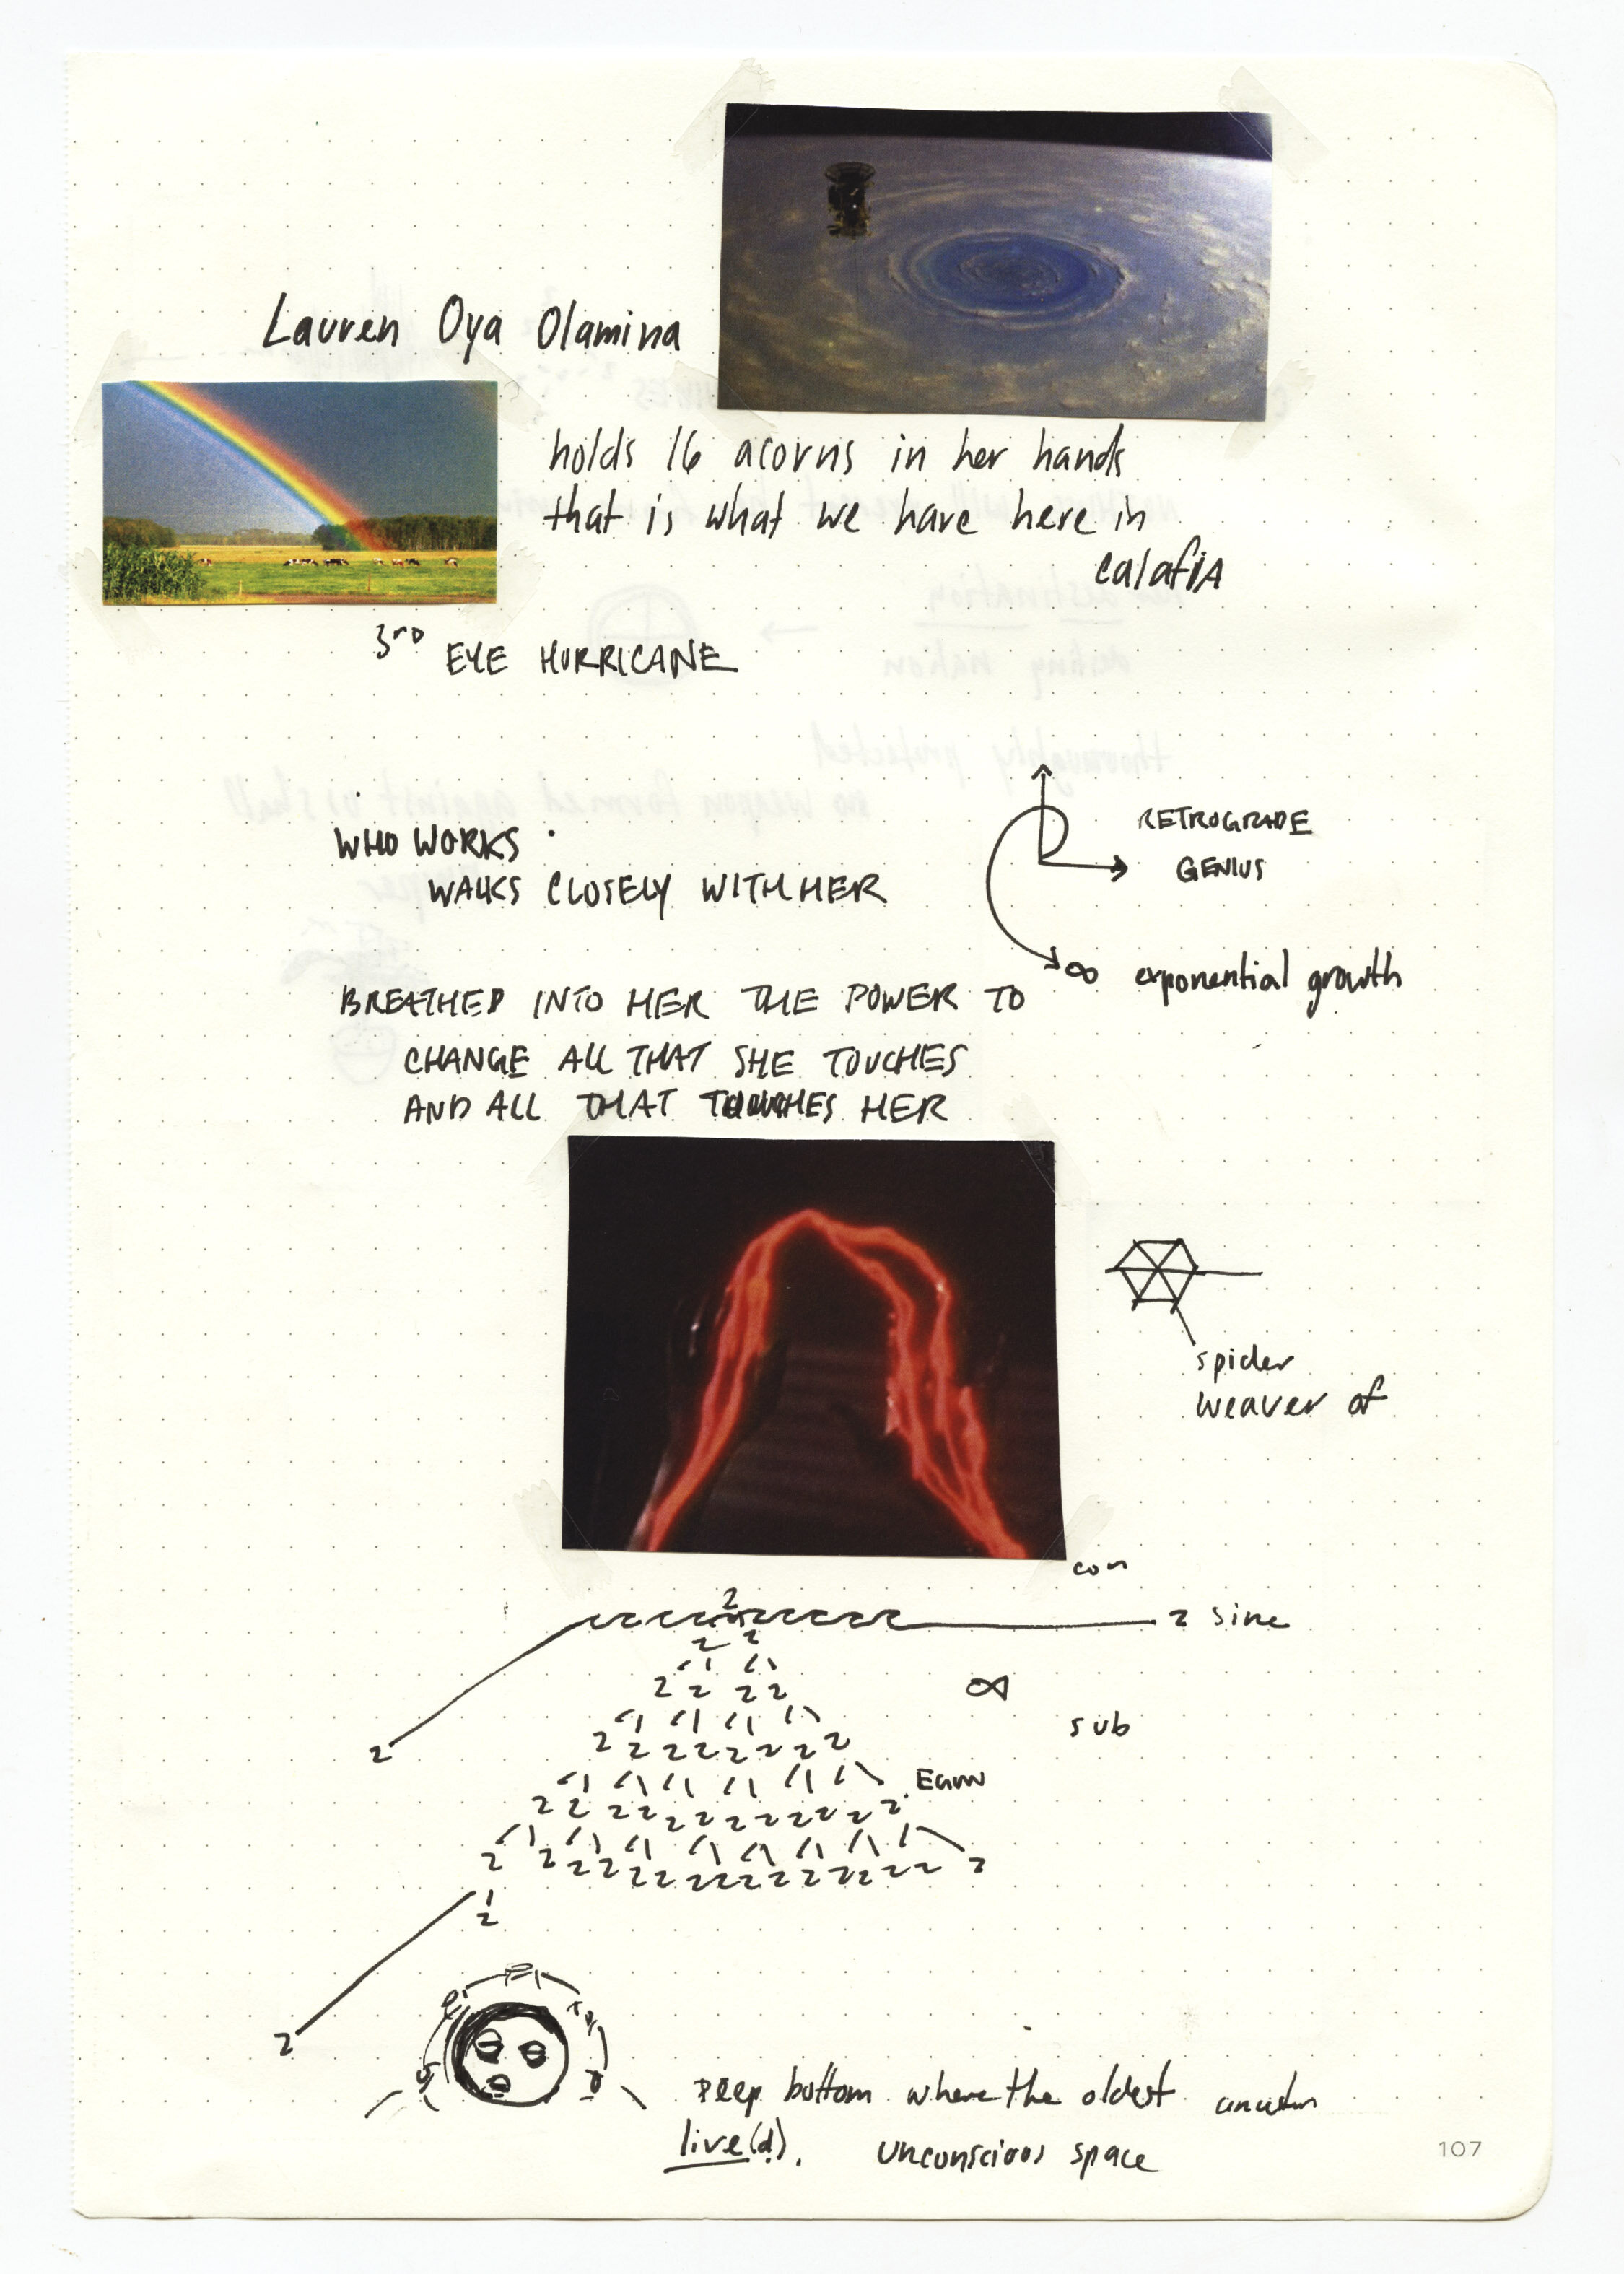 Lauren Oya Olamina
holds 16 acorns in her hands
that is what we have here in
calafiA
3rd EYE HURRICANE
WHO WORKS
WALKS CLOSELY WITH HER
RETROGRADE
GENIUS
∞ exponential growth
BREATHED INTO HER THE POWER TO
CHANGE ALL THAT SHE TOUCHES
AND ALL THAT TOUCHES HER
spider
weaver of
con
2
2 sine
2 2
2 2 2 2
∞
sub
2
2 2 2 2 2 2 2 2
2
2
2
Deep bottom where the oldest
live(d). unconscious space
107